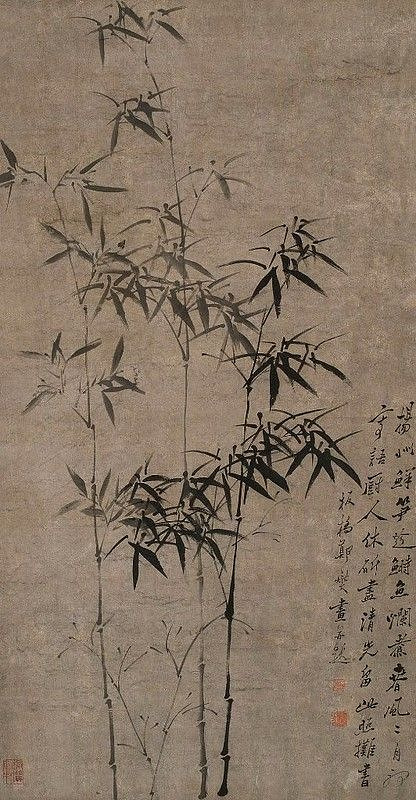 揚州鮮笋趁鰣魚爛煮春風三月初
寄語厨人休斫盡清光留此照攤書
板橋鄭燮畫并題